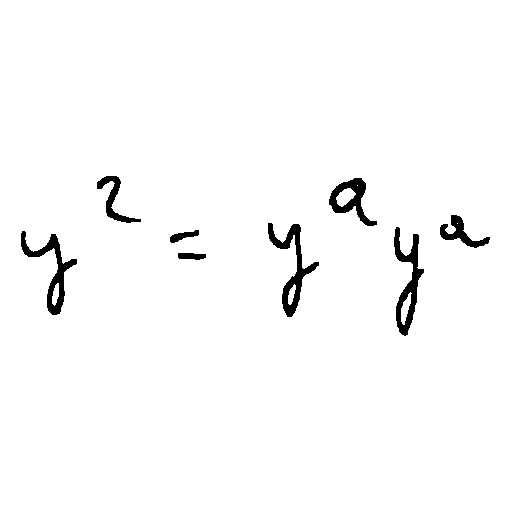 y² = yᵃ yᵃ